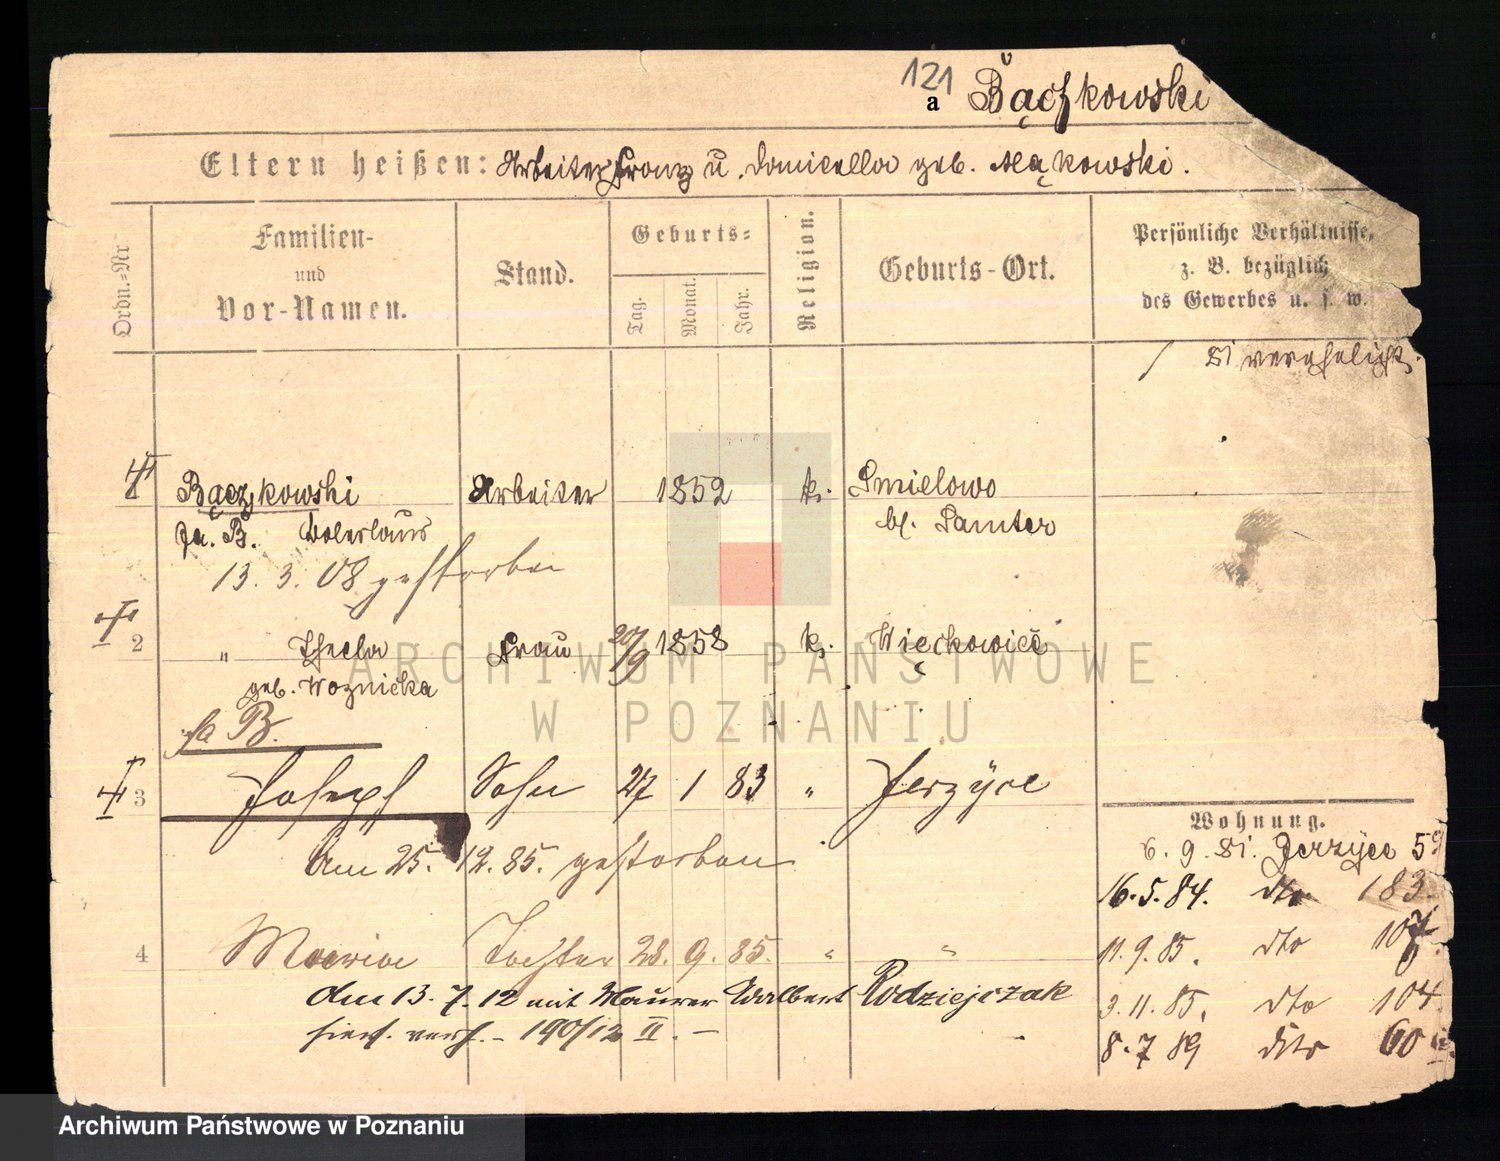 121
a Bączkowski
Eltern heißen: Arbeiter Franz u. Domicella geb. Mąkowski.
Ordn.-Nr
Familien-
und
Vor-Namen.
Stand.
Geburts-
Tag.
Monat.
Jahr.
Religion.
Geburts-Ort.
Persönliche Verhältnisse,
z. B. bezüglich
des Gewerbes u. s. w.
verehelicht.
Bączkowski Arbeiter 1852 k. Smielowo
B. bei Samter
13. 3. 08 gestorben
2 " Thecla Frau 20/9 1858 k. Więckowice
geb. Woznicka
B.
3 Joseph Sohn 27 1 83 " Jerzyce
Am 25. 12. 85. gestorben
4 Maria Tochter 28. 9. 85. " "
Am 13. 7. 12 mit Maurer Adalbert Rodziejczak
hier verh. - 190/12 II. -
Wohnung.
6. 9. Jerzyce 59
16. 5. 84. dto 183.
11. 9. 85. dto 107.
3. 11. 85. dto 104.
8. 7 89 dito 60
ARCHIWUM PAŃSTWOWE
W POZNANIU
Archiwum Państwowe w Poznaniu